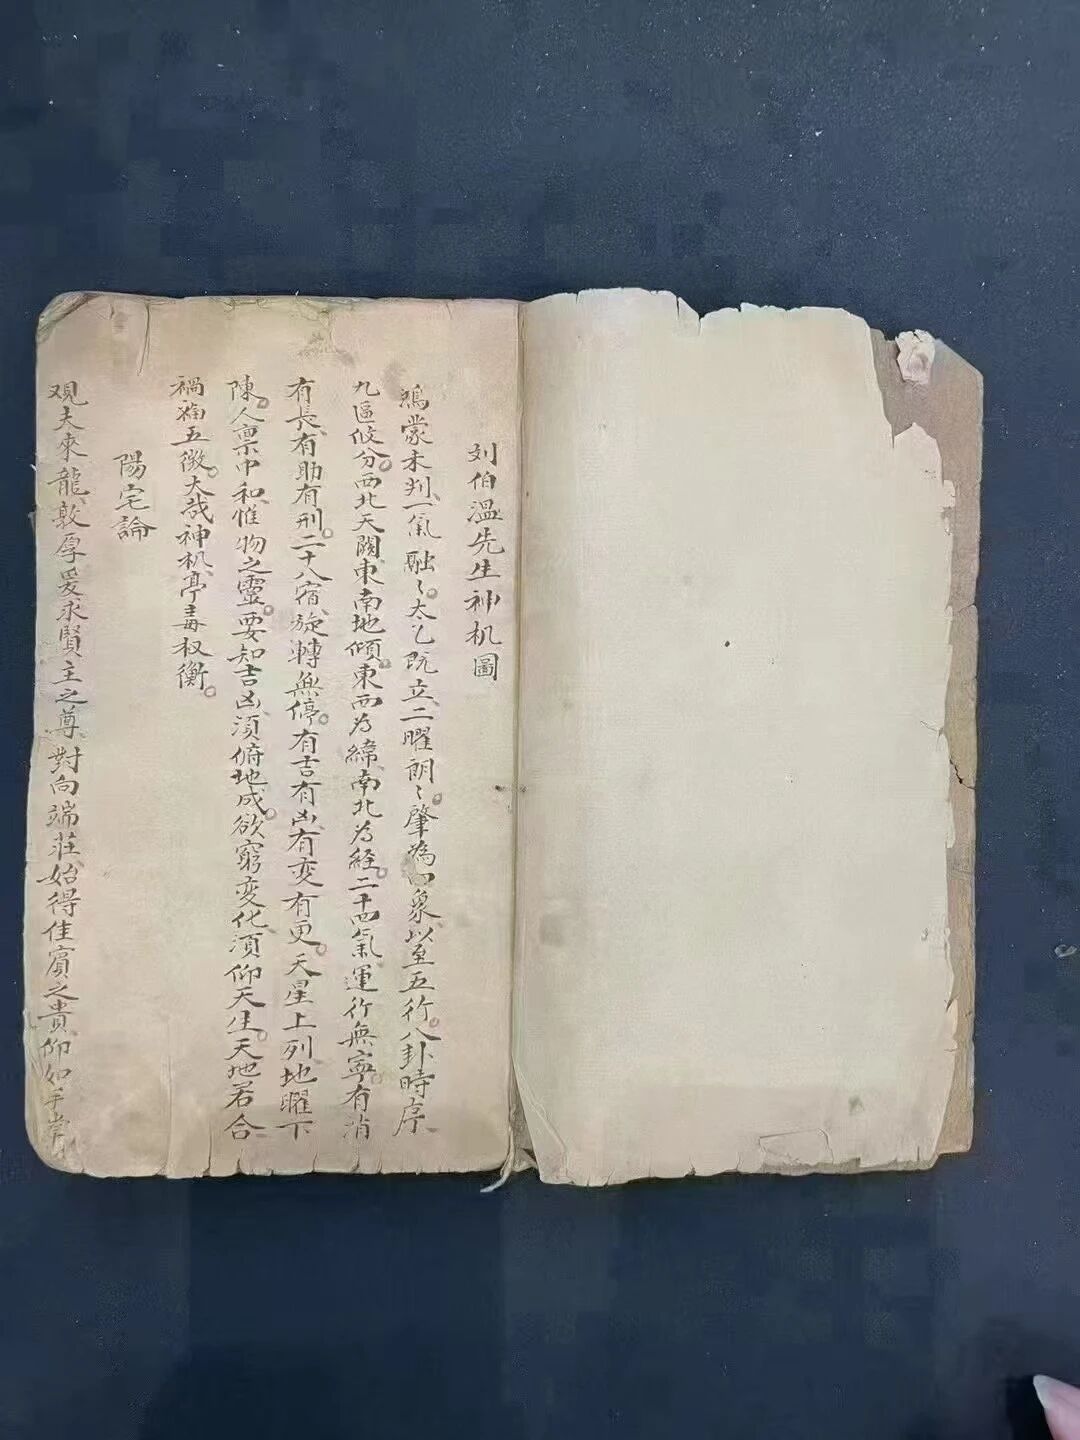 刘伯温先生神机圖
鴻蒙未判一氣融〻。太乙既立二曜朗〻。肇為四象、以至五行。八卦時序、
九區攸分。西北天闕、東南地傾。東西为緯、南北为経。二十四氣、運行無寧。有消
有長、有助有刑。二十八宿、旋轉無停。有吉有凶、有变有更。天星上列、地曜下
陳。人禀中和、惟物之靈。要知吉凶、須俯地成。欲窮变化、須仰天生。天地若合、
禍福五徴。大哉神机、亭毒权衡。
陽宅論
观夫來龍、敦厚爰求賢主之尊、對向端莊、始得佳賓之貴、仰如手掌